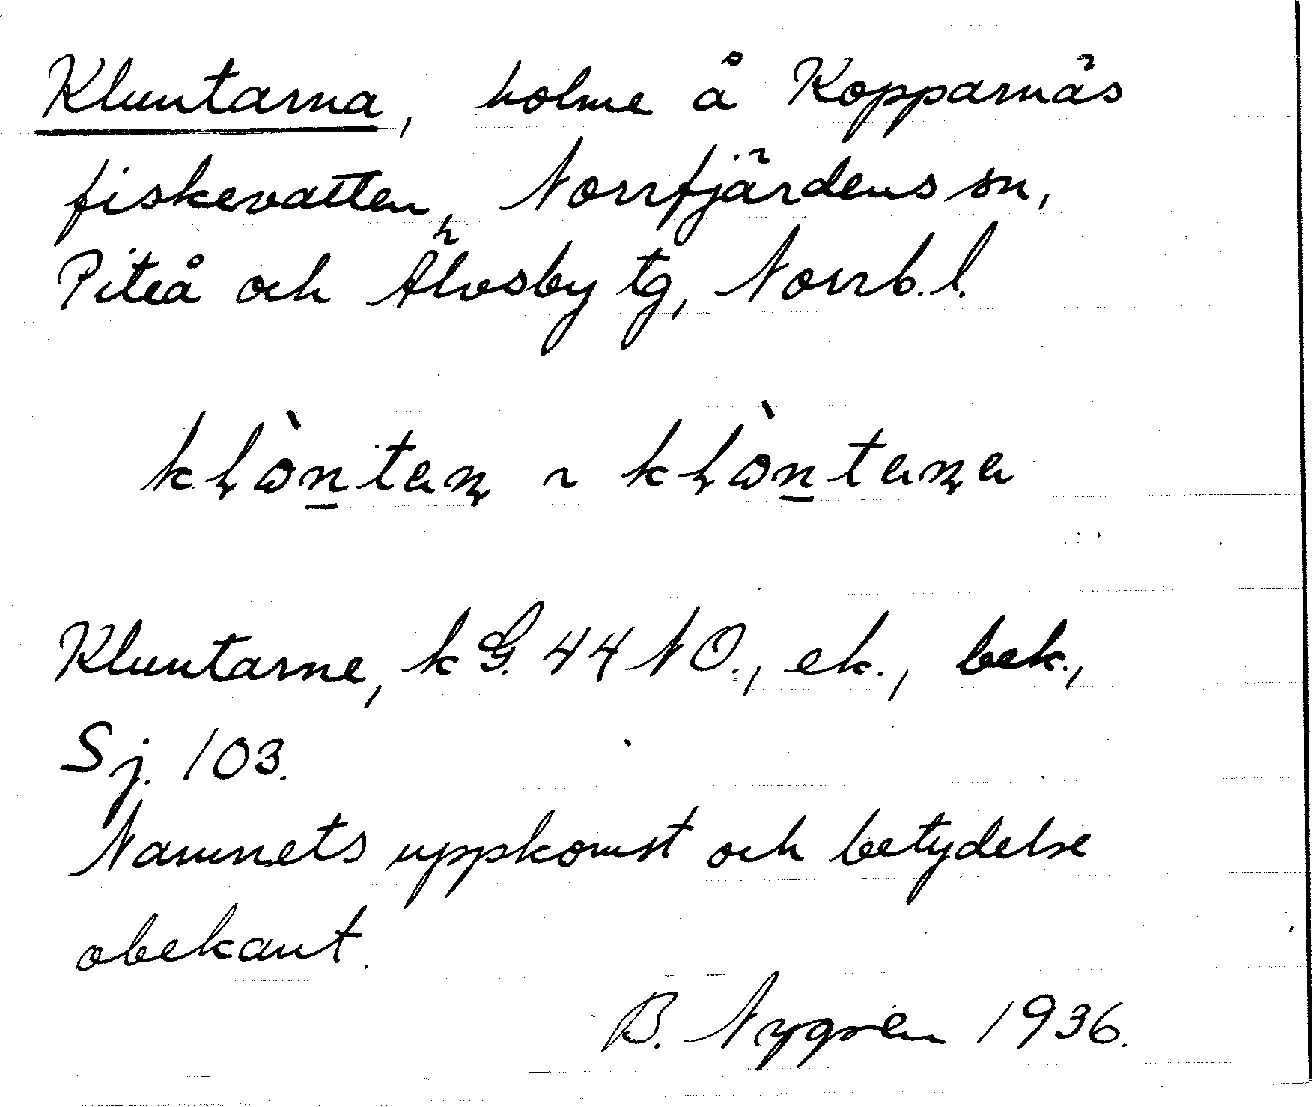 Kluntarna, holme å Kopparnäs
fiskevatten, Norrfjärdens sn,
Piteå och Älvsby tg, Norrb. l.
Kluntarne, k G. 44 NO., ek., bek.,
Sj. 103.
Namnets uppkomst och betydelse
obekant.
B. Nygren 1936.